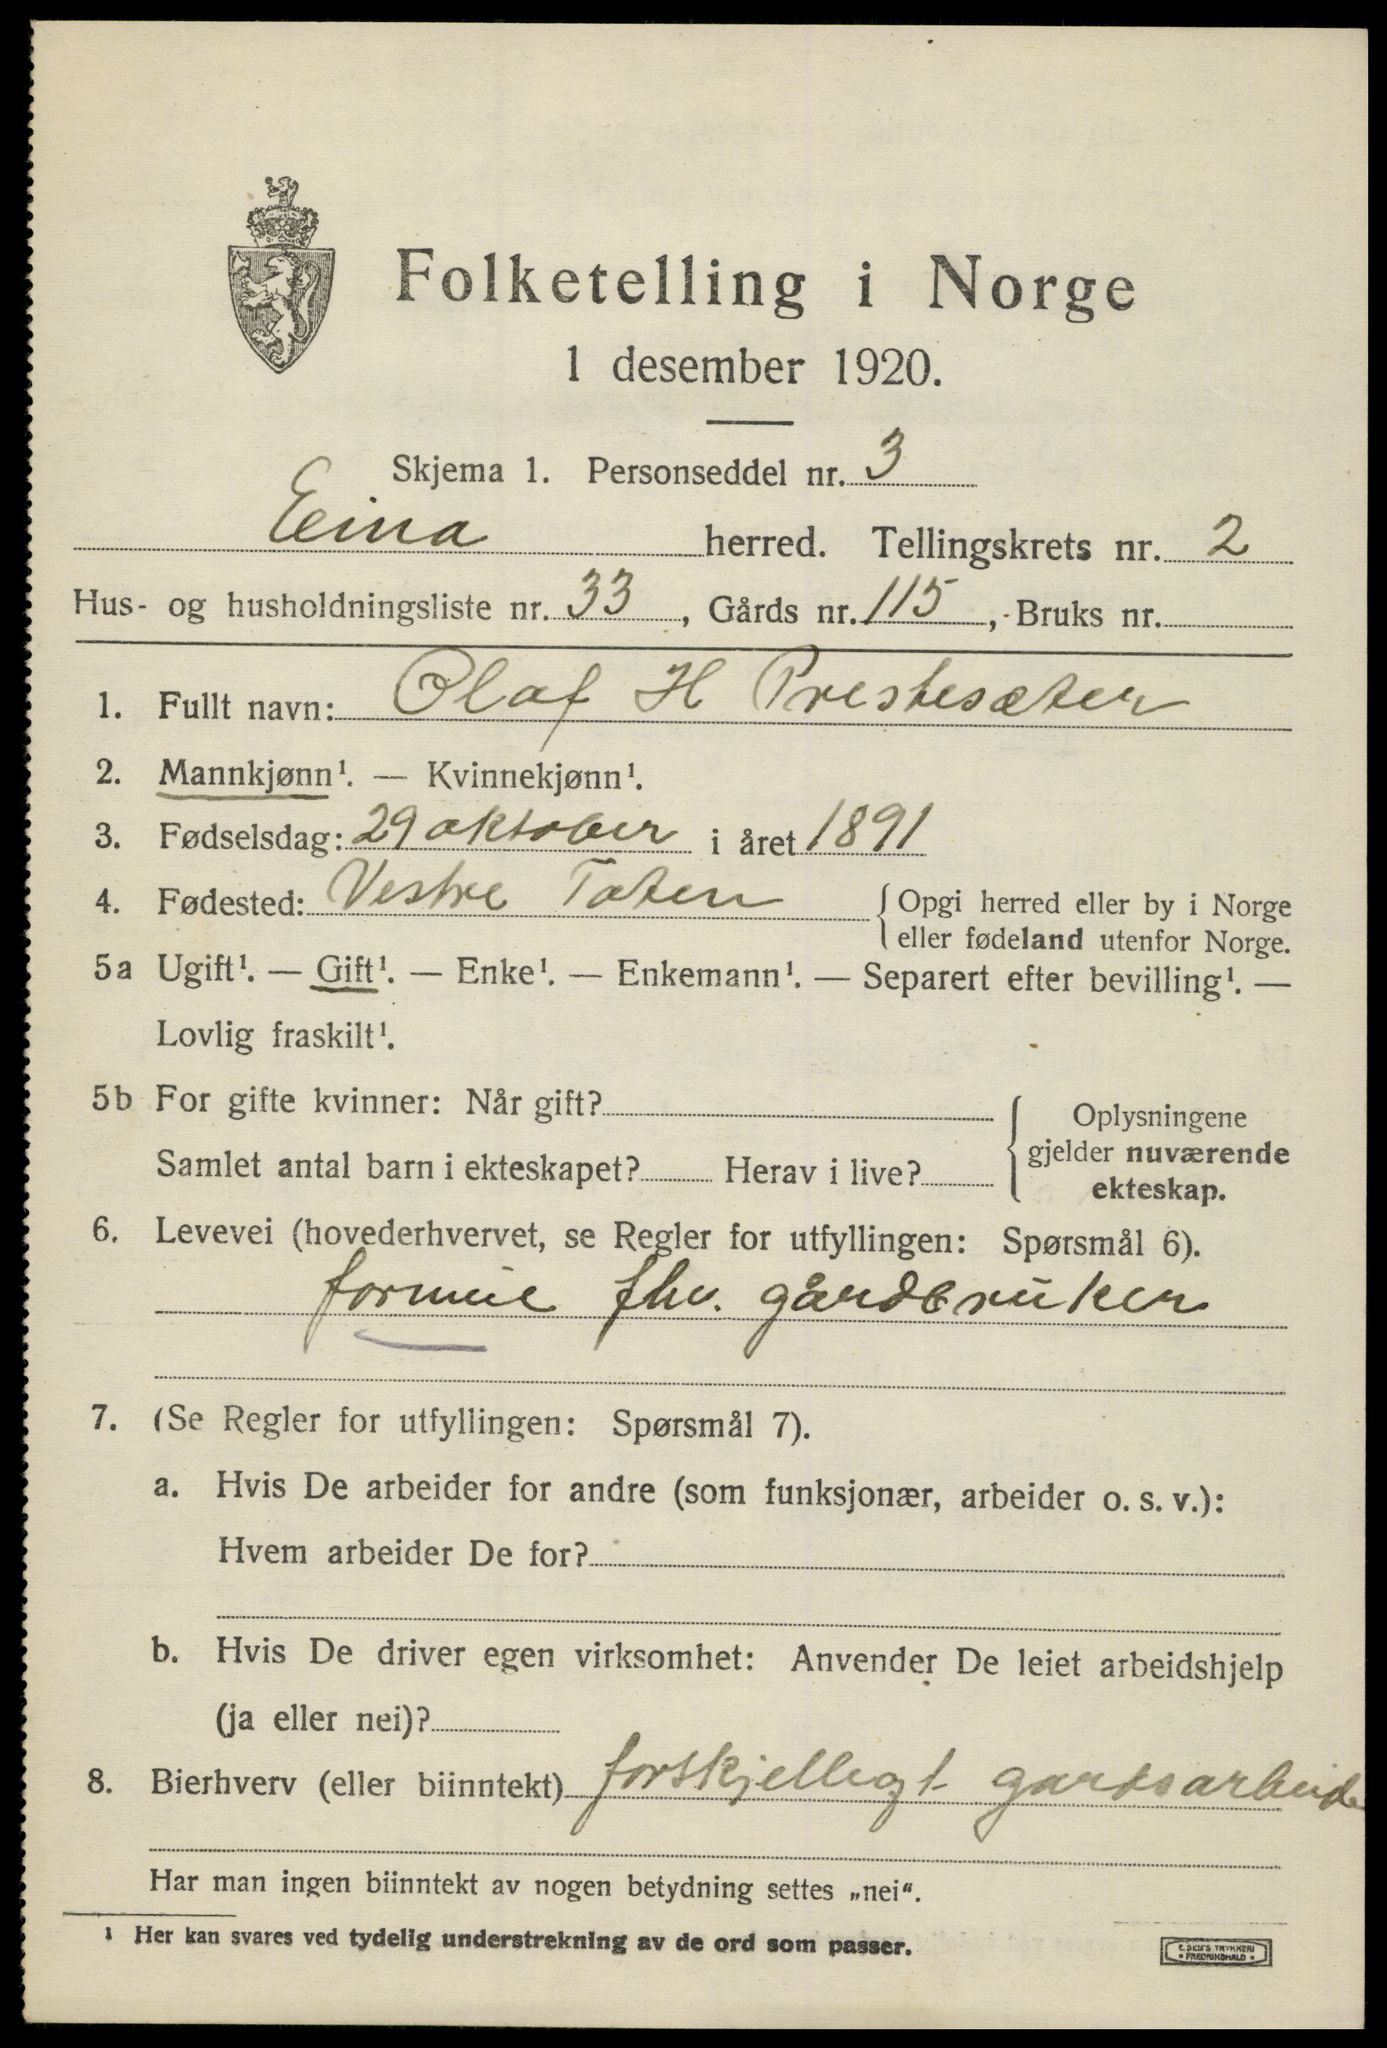 Folketelling i Norge
1 desember 1920.
Skjema 1. Personseddel nr. 3
Eina herred. Tellingskrets nr. 2
Hus- og husholdningsliste nr. 33, Gårds nr. 115, Bruks nr.
1. Fullt navn: Olaf H Prestesæter
2. Mannkjønn¹. — Kvinnekjønn¹.
3. Fødselsdag: 29 oktober i året 1891
4. Fødested: Vestre Toten {Opgi herred eller by i Norge
eller fødeland utenfor Norge.
5a Ugift¹. — Gift¹. — Enke¹. — Enkemann¹. — Separert efter bevilling¹. —
Lovlig fraskilt¹.
5b For gifte kvinner: Når gift? {Oplysningene
gjelder nuværende
Samlet antal barn i ekteskapet? Herav i live?
ekteskap.
6. Levevei (hovederhvervet, se Regler for utfyllingen: Spørsmål 6).
formue fhv. gårdbruker
7. (Se Regler for utfyllingen: Spørsmål 7).
a. Hvis De arbeider for andre (som funksjonær, arbeider o. s. v.):
Hvem arbeider De for?
b. Hvis De driver egen virksomhet: Anvender De leiet arbeidshjelp
(ja eller nei)?
8. Bierhverv (eller biinntekt) forskjelligt gardsarbeide
Har man ingen biinntekt av nogen betydning settes „nei“.
¹ Her kan svares ved tydelig understrekning av de ord som passer.
E. SEM'S TRYKKERI
• FREDRIKSHALD •